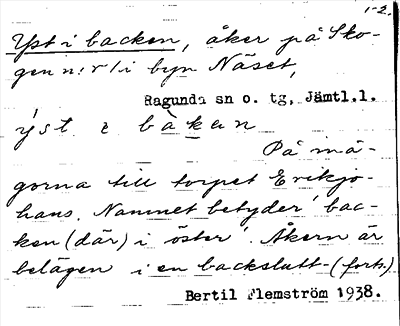 1-2.
Yst i backen, åker på Sko-
gen n:r 1 i byn Näset,
Ragunda sn o. tg, Jämtl.l.
ýst i bàken
På mä-
gorna till torpet Erikjo-
hans. Namnet betyder 'bac-
ken (där) i öster'. Åkern är
belägen i en backslutt-(forts.)
Bertil Flemström 1938.